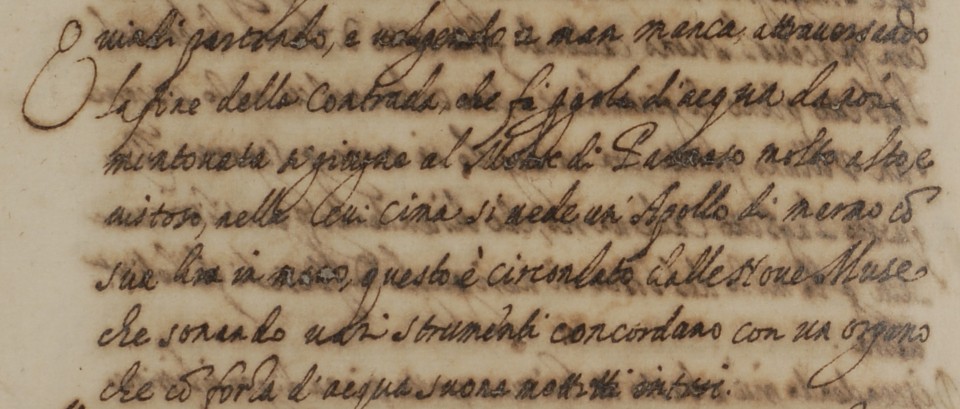 Quindi partendo, e volgendo a man manca, attraversando
la fine della Contrada, che fà pgola d'acqua da noi
mentovata si giugne al Monte di Parnaso molto alto, e
vistoso, nella cui cima si vede un' Apollo di marmo cō
sua lira in mano, questo è circondato dalle Nove Muse
che sonando varī strumenti concordano con un organo
che cō forza d'acqua suona mottetti intieri.